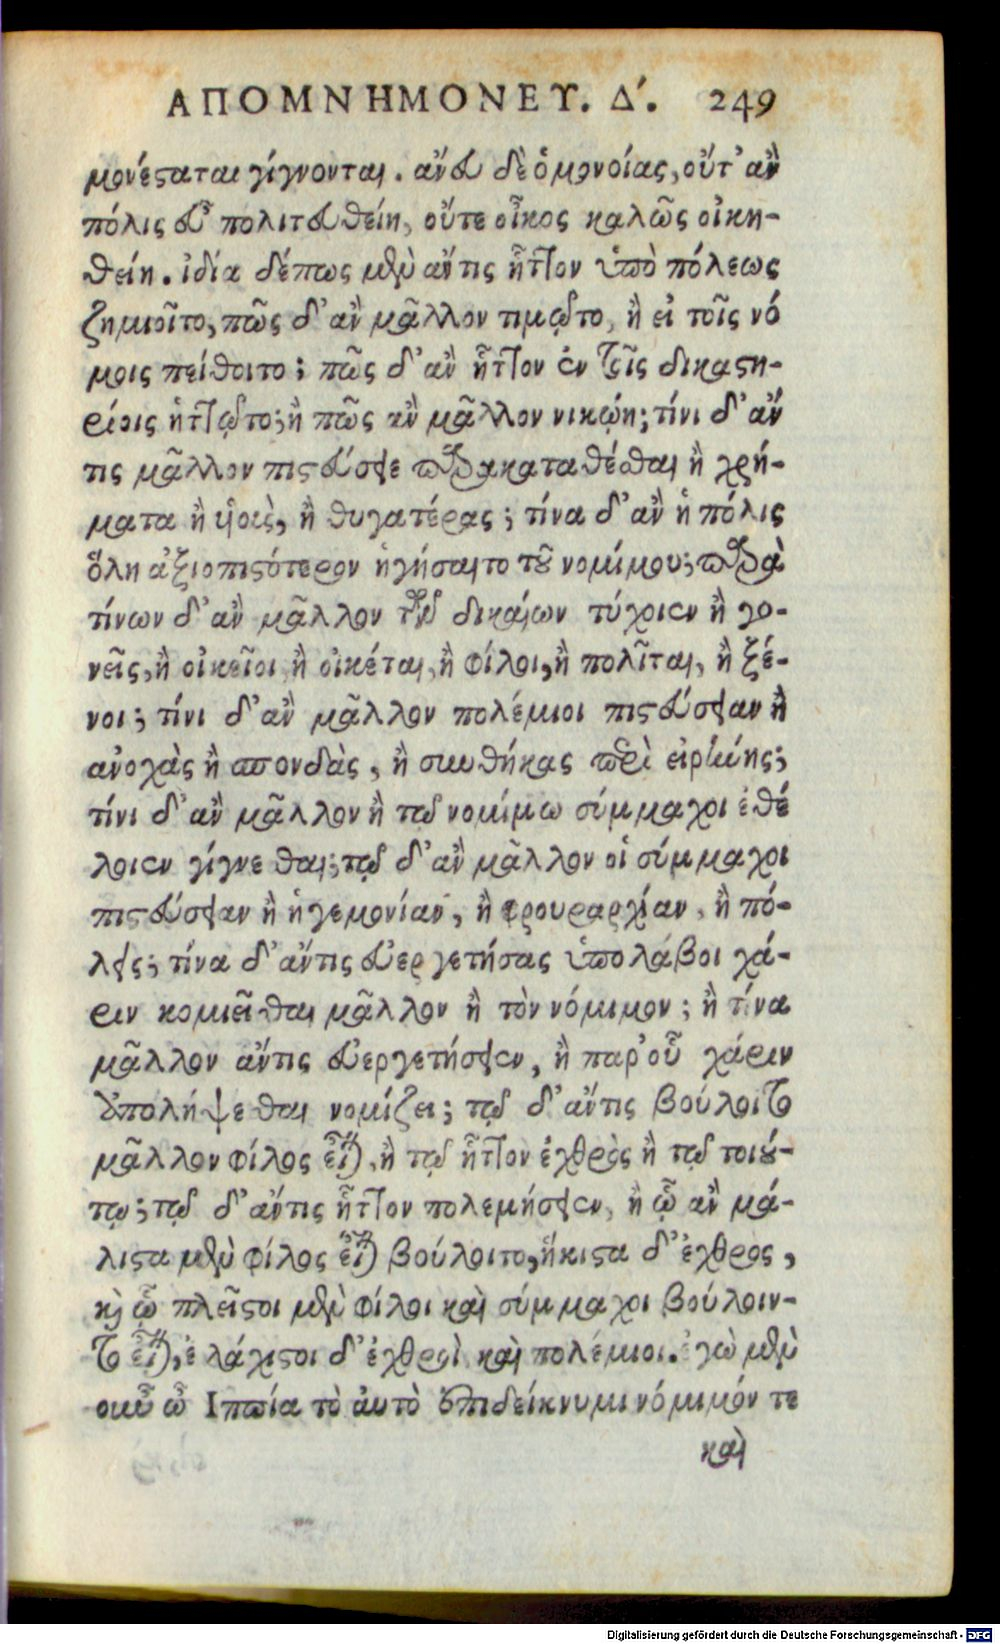 ΑΠΟΜΝΗΜΟΝΕΥ. Δ΄. 249
μονέςαται γίγνονται. ἄνευ δὲ ὁμονοίας, οὔτ' ἂν
πόλις εὖ πολιτευθείη, οὔτε οἶκος καλῶς οἰκη-
θείη. ἰδία δέπως μὲν ἄν τις ἧττον ὑπὸ πόλεως
ζημιοῖτο, πῶς δ' ἂν μᾶλλον τιμῷτο, ἢ εἰ τοῖς νό
μοις πείθοιτο; πῶς δ' ἂν ἧττον ἐν τοῖς δικαςη-
ρίοις ἡττῷτο; ἢ πῶς ἂν μᾶλλον νικῴη; τίνι δ' ἄν
τις μᾶλλον πιςεύσειε παρακαταθέσθαι ἢ χρή-
ματα ἢ ὑιοὺς, ἢ θυγατέρας; τίνα δ' ἂν ἡ πόλις
ὅλη ἀξιοπιςότερον ἡγήσαιτο τοῦ νομίμου; παρὰ
τίνων δ' ἂν μᾶλλον τῶν δικαίων τύχοιεν ἢ γο-
νεῖς, ἢ οἰκεῖοι, ἢ οἰκέται, ἢ φίλοι, ἢ πολῖται, ἢ ξέ-
νοι; τίνι δ' ἂν μᾶλλον πολέμιοι πιςεύσειαν ἢ
ἀνοχὰς ἢ σπονδὰς, ἢ συνθήκας περὶ εἰρήνης;
τίνι δ' ἂν μᾶλλον ἢ τῷ νομίμω σύμμαχοι ἐθέ
λοιεν γίγνεσθαι; τῷ δ' ἂν μᾶλλον οἱ σύμμαχοι
πιςεύσειαν ἢ ἡγεμονίαν, ἢ φρουραρχίαν, ἢ πό-
λεις; τίνα δ' ἄν τις εὐεργετήσας ὑπολάβοι χά-
ριν κομιεῖσθαι μᾶλλον ἢ τὸν νόμιμον; ἢ τίνα
μᾶλλον ἄν τις εὐεργετήσειεν, ἢ παρ' οὗ χάριν
ἀπολήψεσθαι νομίζει; τῷ δ' ἄν τις βούλοιτο
μᾶλλον φίλος εἶναι, ἢ τῷ ἧττον ἐχθρὸς ἢ τῷ τοιού-
τῳ; τῷ δ' ἄν τις ἧττον πολεμήσειεν, ἢ ᾧ ἂν μά-
λιςα μὲν φίλος εἶναι βούλοιτο, ἥκιςα δ' ἐχθρος,
καὶ ᾧ πλεῖςοι μὲν φίλοι καὶ σύμμαχοι βούλοιν-
το εἶναι, ἐλάχιςοι δ' ἐχθροὶ καὶ πολέμιοι. ἐγὼ μὲν
οὖν ὦ Ἱππία τὸ ἀυτὸ ἐπιδείκνυμι νόμιμόν τε
καὶ
Digitalisierung gefördert durch die Deutsche Forschungsgemeinschaft - DFG